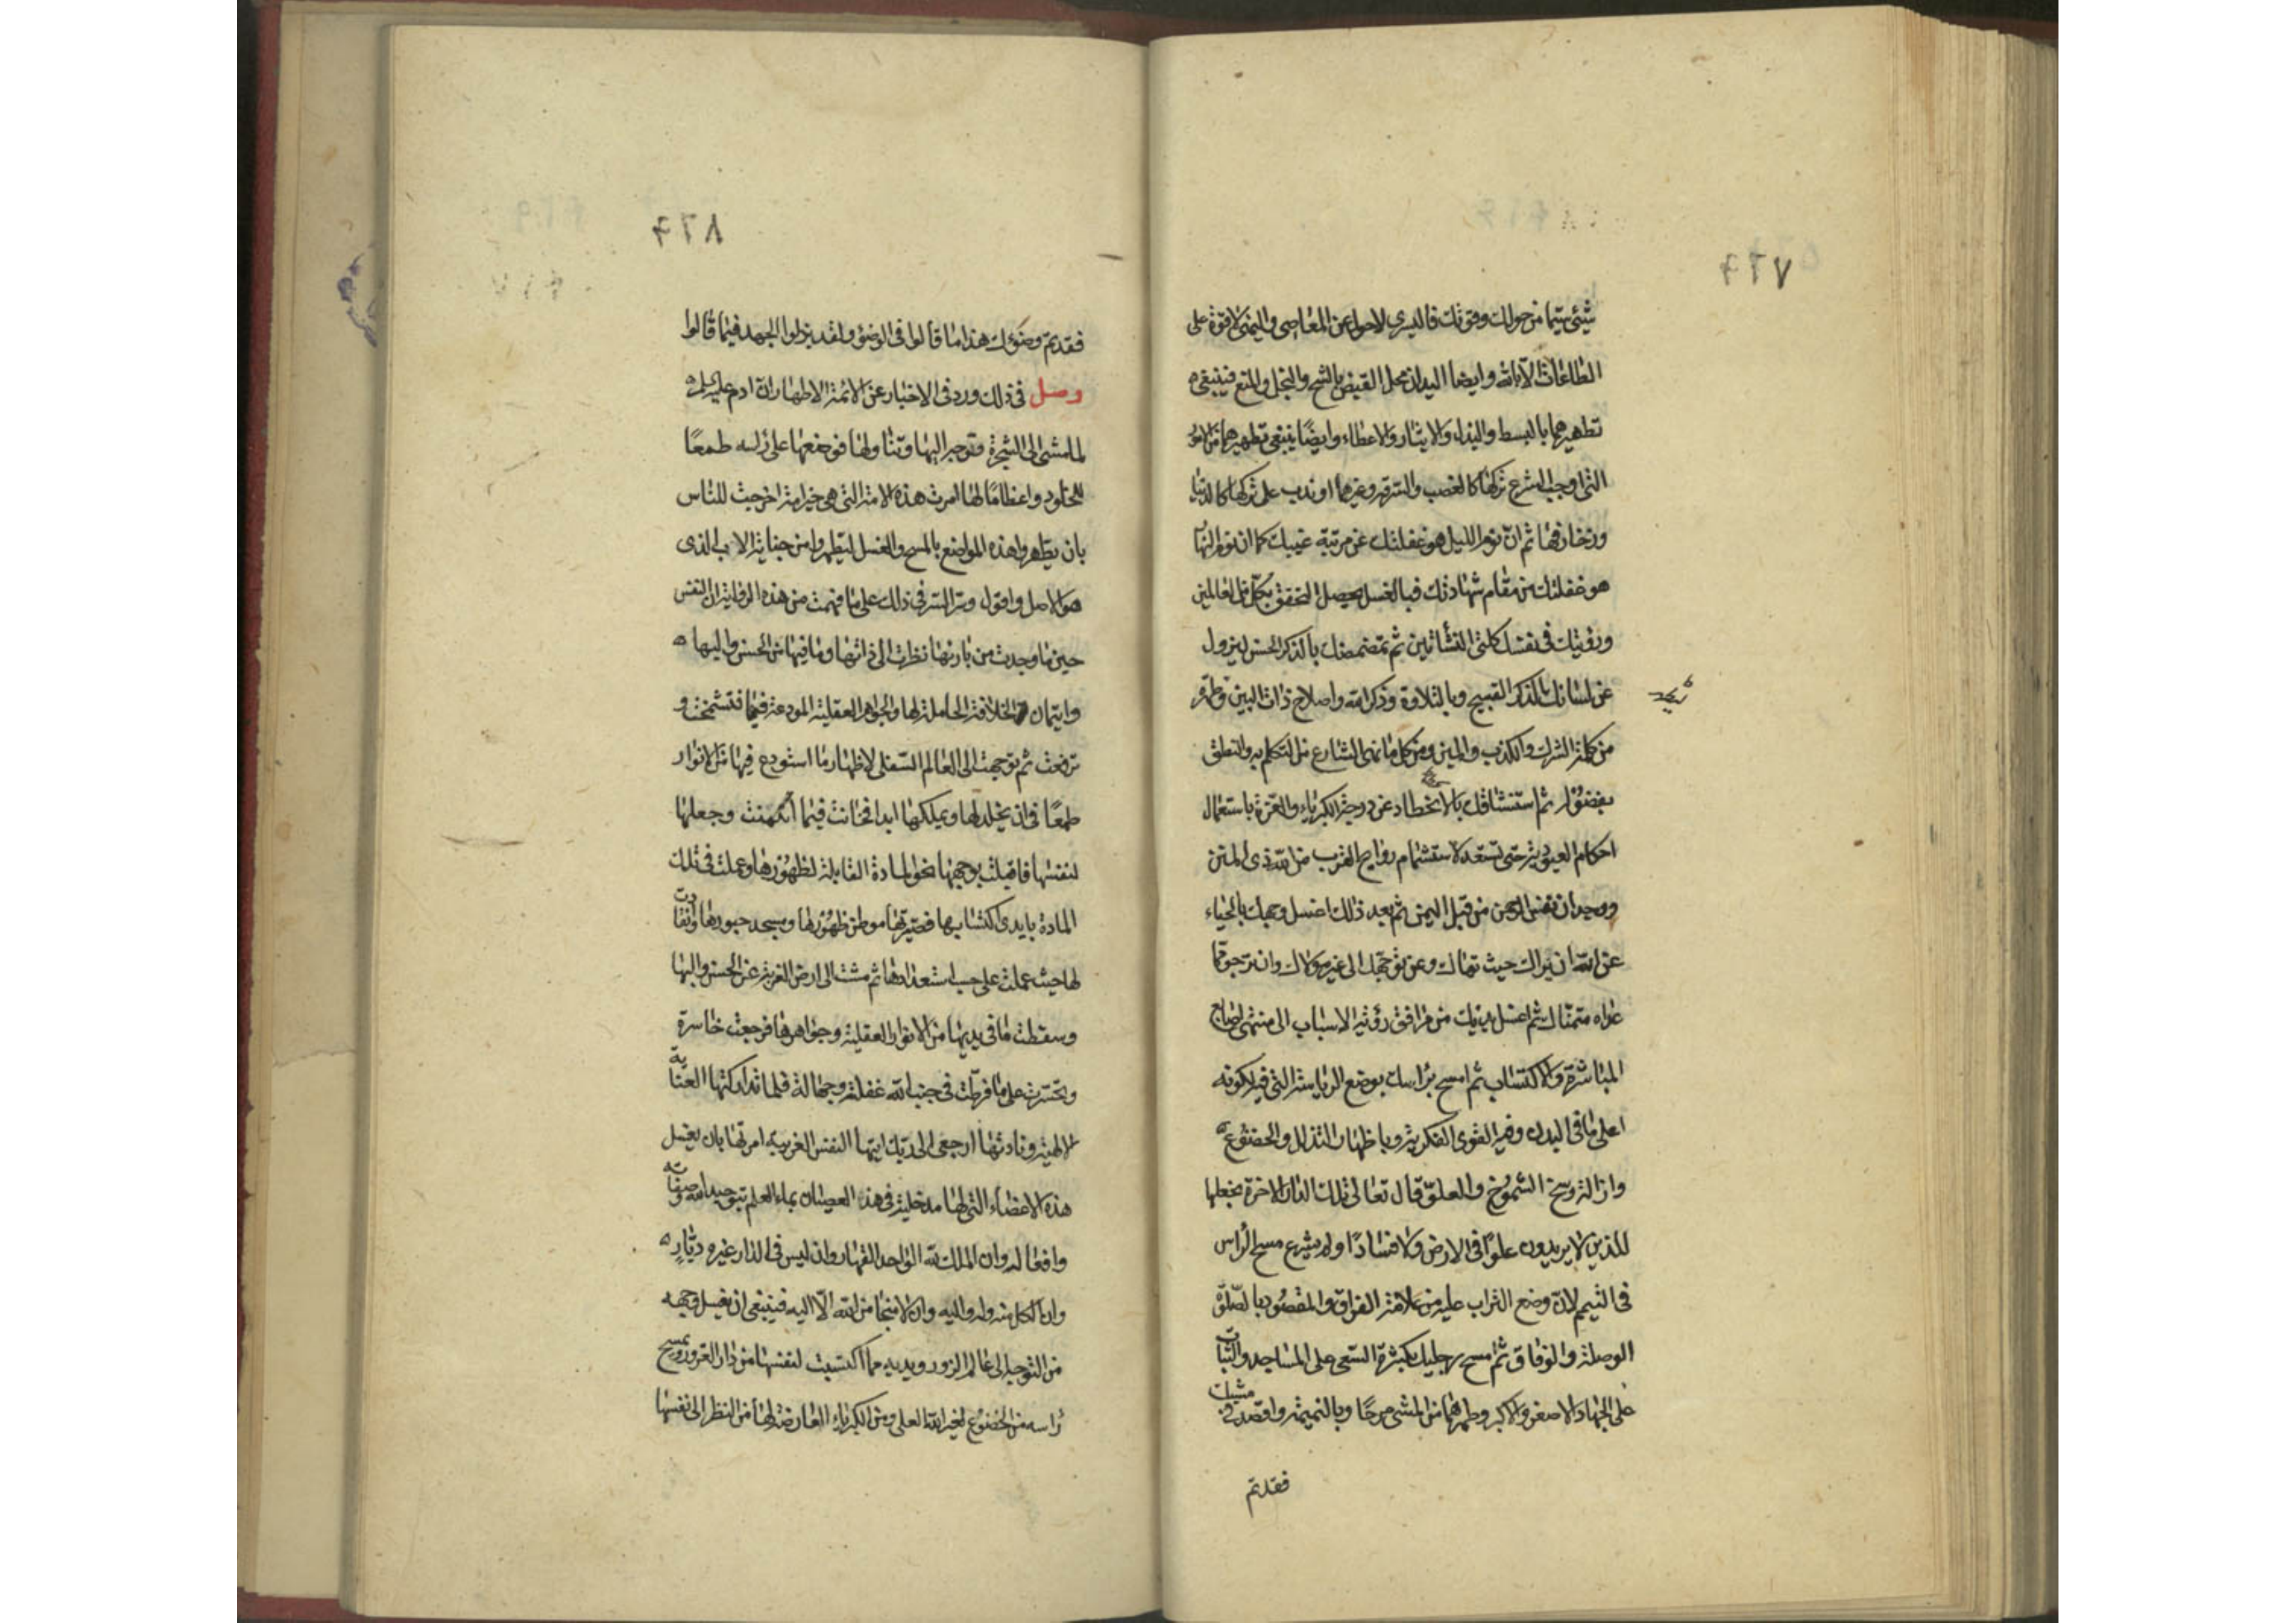 ٤٢٧
شيئی سيّما من حولك وقوتك فاليسرى لاحول عن المعاصی واليمنی لا قوة على
الطاعات الّا بالله وايضا اليدان محل القبض بالشح والبخل والمنع فينبغی
تطهيرهما بالبسط والبذل والايثار والاعطاء وايضًا ينبغی تطهيرهما من الامور
التی اوجب الشرع تركها كالغصب والسرقة وغيرهما او ندب على تركها كالدنيا
وزخارفها ثم انّ نوم الليل هو غفلتك عن مرتبة غيبك كما ان نوم النهار
هو غفلتك من مقام شهادتك فبالغسل يحصل التحقق بكل من العالمين
ورؤيتك فی نفسك كلتی النشأتين ثم تمضمضك بالذكر الحسن ليزول
عن لسانك الذكر القبيح وبالتلاوة وذكر الله واصلاح ذات البين وطهّر
من كلمة الشرك والكذب والمين ومن كل ما نهی الشارع من التكلم به والنطق
بفضول ثم استنشاقك بالانحطاط عن درجة الكبرياء والعزة باستعمال
احكام العبودية حتى تستعد لاستشمام روايح القرب من الله ذی المنن
ووجدان نفس الرحمن من قبل اليمن ثم بعد ذلك اغسل وجهك بالحياء
عن الله ان يراك حيث نهاك وعن توجّهك الى غير مولاك وان ترجو ممّا
عداه متمنّاك ثم اغسل يديك من مرافق رؤية الاسباب الى منتهى اصابع
المباشرة والاكتساب ثم امسح برأسك بوضع الرياسة التی فيه لكونه
اعلى ما فی البدن وفيه القوى الفكرية وباظهار التذلل والخضوع
وازالة وسخ الشموخ والعلوّ قال تعالى تلك الدار الاخرة نجعلها
للذين لا يريدون علوًا فی الارض ولا فسادًا ولم يشرع مسح الرأس
فی التيمم لان وضع التراب عليه من علامة الفراق والمقصود بالصلوة
الوصلة والوفاق ثم امسح رجليك بكثرة السعی على المساجد والثبات
على الجهاد الاصغر والاكبر وطهرهما من المشی مرحًا وبالنميمة واقصد فی مشيك
فقد تمّ
٤٢٨
فقد تمّ وضوؤك هذا ما قالوا فی الوضوء ولقد بذلوا الجهد فيما قالوا
وصل فی ذلك ورد فی الاخبار عن الائمة الاطهار ان آدم عليه السلم
لما مشى الى الشجرة وتوجه اليها وتناولها فوضعها على رأسه طمعًا
للخلود واعظامًا لها امرت هذه الامة التی هی خير امة اخرجت للناس
بان يطهروا هذه المواضع بالمسح والغسل ليتطهروا من جناية الاب الذی
هو الاصل واقول وسرّ السرّ فی ذلك على ما فهمت من هذه الرواية ان النفس
حين ما وجدت من بارئها نظرت الى ذاتها وما فيها من الحسن والبهاء
وايتمان الخلافة الحاملة لها والجواهر العقلية المودعة فيها فتشمخت و
ترفعت ثم توجهت الى العالم السفلی لاظهار ما استودع فيها من الانوار
طمعًا فی ان يخلد لها ويملكها ابدا فخانت فيما ائتمنت وجعلها
لنفسها فاقبلت بوجهها نحو المادة القابلة لظهورها وعملت فی تلك
المادة بايدی اكتسابها فصيّرتها موطن ظهورها ومسجد حبورها وانقادت
لها حيث عملت على حسب استعدادها ثم مشت الى ارض الغربة عن الحسن والبهاء
وسقطت ما فی يديها من الانوار العقلية وجواهرها فرجعت خاسرة
وتحسّرت على ما فرطت فی جنب الله غفلة وجهالة فلما تداركتها العناية
الالهية ونادتها ارجعی الى ربّك ايتها النفس الغريبة امرتها بان يغسل
هذه الاعضاء التی لها مدخلية فی هذا العصيان بماء العلم بتوحيد الله وصفاته
وافعاله وان الملك لله الواحد القهار وان ليس فی الدار غيره ديّار
وان الكل منه وله واليه وان لا منجا من الله الّا اليه فينبغی ان يغسل وجهه
من التوجه الى عالم الزور ويديه مما اكتسبت لنفسها من دار الغرور ويمسح
رأسه من الخضوع لغير الله العلی ومن الكبرياء العارضة لها من النظر الى نفسها